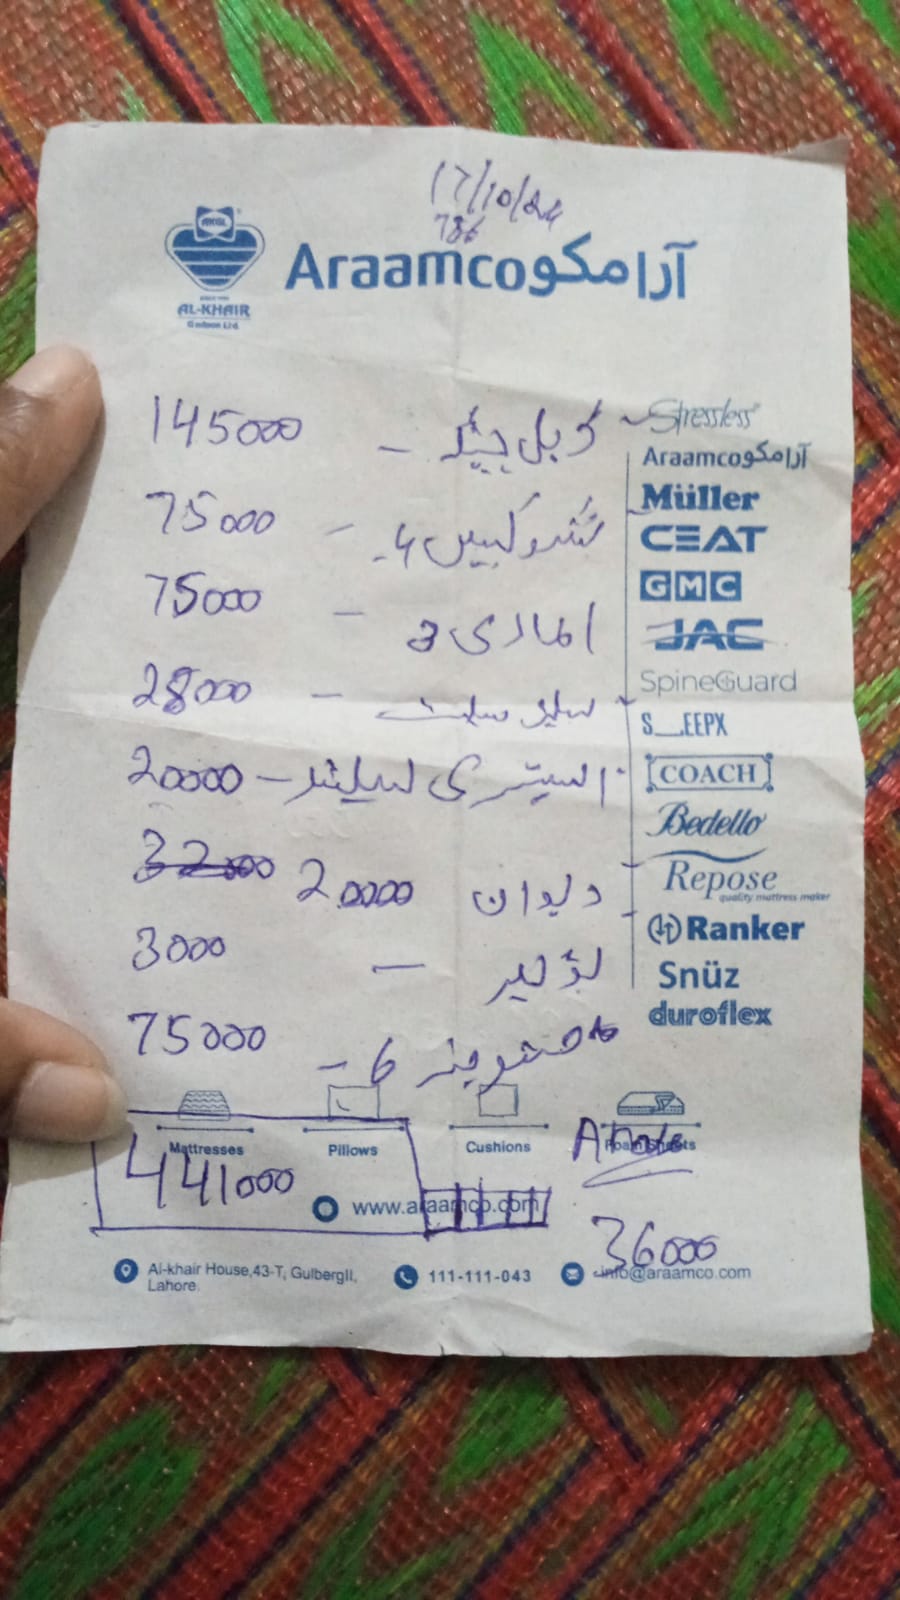 17/10/24
786
AKGL
SINCE 1990
AL-KHAIR
Gadoon Ltd.
Araamco آرامکو
145000 - ڈبل بیڈ
75000 - شوکیس 4
75000 - الماری 3
28000 -
20000 - استری سٹینڈ
32000 20000 دیوان
3000 -
75000 - 6
441000
36000
Stressless
Araamco آرامکو
Müller
CEAT
GMC
JAC
SpineGuard
S__EEPX
COACH
Bedello
Repose
quality mattress maker
Ranker
Snüz
duroflex
Mattresses
Pillows
Cushions
Foam Sheets
www.araamco.com
Al-khair House,43-T, GulbergII,
Lahore.
111-111-043
info@araamco.com